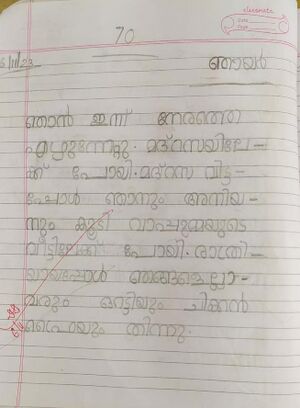 classmate
Date
Page
70
5/11/23
ഞായർ
ഞാൻ ഇന്ന് നേരത്തെ
എഴുന്നേറ്റു. മദ്റസയിലേ-
ക്ക് പോയി. മദ്റസ വിട്ട-
പ്പോൾ ഞാനും അനിയ-
നും കൂടി വാപ്പുമ്മയുടെ
വീട്ടിലേക്ക് പോയി. രാത്രി-
യായപ്പോൾ ഞങ്ങളെല്ലാ-
വരും റൊട്ടിയും ചിക്കൻ
ഫ്രൈയും തിന്നു.